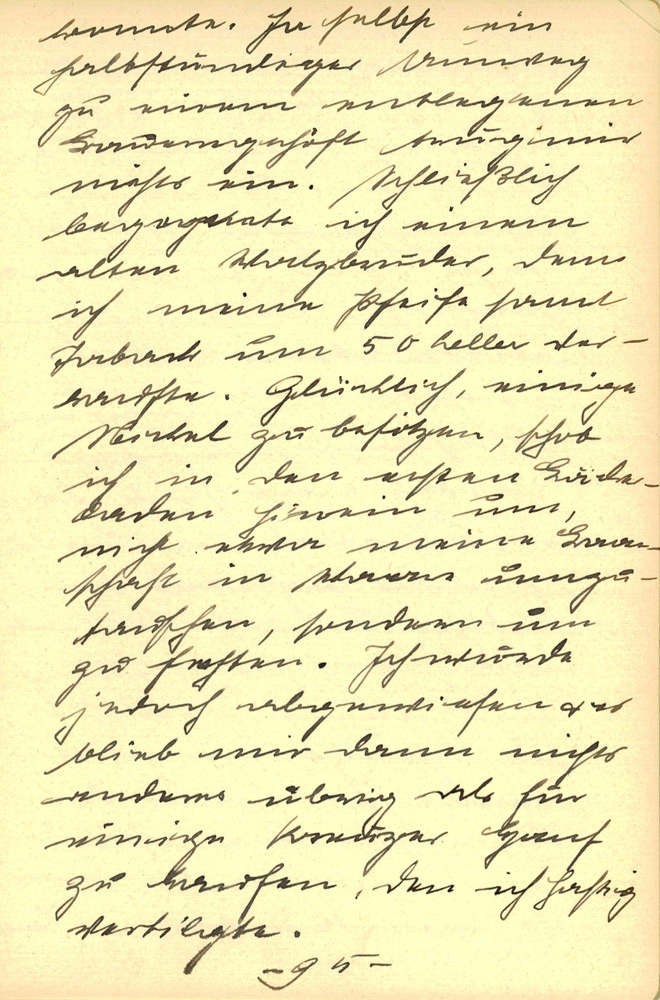 konnte. Ja selbst ein
halbstündiger Umweg
zu einem entlegenen
Bauerngehöft trug mir
nichts ein. Schließlich
begegnete ich einem
alten Walzbruder, dem
ich meine Pfeife samt
Tabak um 50 heller ver-
kaufte. Glücklich, einige
Nickel zu besitzen, schob
ich in den ersten
laden hinein um,
nicht etwa meine Baar-
schaft in Waare umzu-
tauschen, sondern um
zu fechten. Ich wurde
jedoch abgewiesen & es
blieb mir dann nichts
anderes übrig als für
einige Kreuzer
zu kaufen, den ich hastig
vertilgte.
-95-